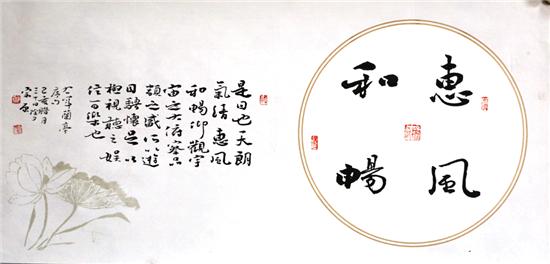 惠風
和暢
是日也天朗
氣清惠風
和暢仰觀宇
宙之大俯察品
類之盛所以遊
目騁懷足以
極視聽之娛
信可樂也
右軍蘭亭
序句
己亥臘月
三十日